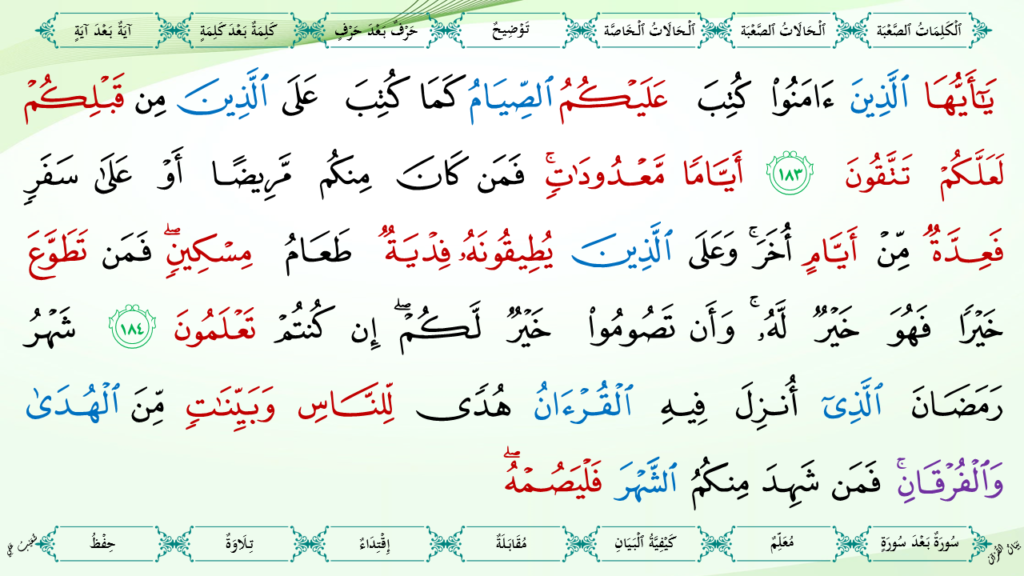 اَلْكَلِمَاتُ الصَّعْبَة اَلْحَالَاتُ الصَّعْبَة اَلْحَالَاتُ الْخَاصَّة تَوْضِيحٌ حَرْفٌ بَعْدَ حَرْفٍ كَلِمَةٌ بَعْدَ كَلِمَةٍ آيَةٌ بَعْدَ آيَةٍ
يَـٰٓأَيُّهَا ٱلَّذِينَ ءَامَنُوا۟ كُتِبَ عَلَيْكُمُ ٱلصِّيَامُ كَمَا كُتِبَ عَلَى ٱلَّذِينَ مِن قَبْلِكُمْ
لَعَلَّكُمْ تَتَّقُونَ ١٨٣ أَيَّامًا مَّعْدُودَٰتٍۚ فَمَن كَانَ مِنكُم مَّرِيضًا أَوْ عَلَىٰ سَفَرٍ
فَعِدَّةٌ مِّنْ أَيَّامٍ أُخَرَۚ وَعَلَى ٱلَّذِينَ يُطِيقُونَهُۥ فِدْيَةٌ طَعَامُ مِسْكِينٍۖ فَمَن تَطَوَّعَ
خَيْرًا فَهُوَ خَيْرٌ لَّهُۥۚ وَأَن تَصُومُوا۟ خَيْرٌ لَّكُمْۖ إِن كُنتُمْ تَعْلَمُونَ ١٨٤ شَهْرُ
رَمَضَانَ ٱلَّذِىٓ أُنزِلَ فِيهِ ٱلْقُرْءَانُ هُدًى لِّلنَّاسِ وَبَيِّنَـٰتٍ مِّنَ ٱلْهُدَىٰ
وَٱلْفُرْقَانِۚ فَمَن شَهِدَ مِنكُمُ ٱلشَّهْرَ فَلْيَصُمْهُۖ
سُورَةٌ بَعْدَ سُورَةٍ مُعَلِّمٌ كَيْفِيَّةُ الْبَيَانِ مُقَابَلَةٌ إِقْتِدَاءٌ تِلَاوَةٌ حِفْظُ